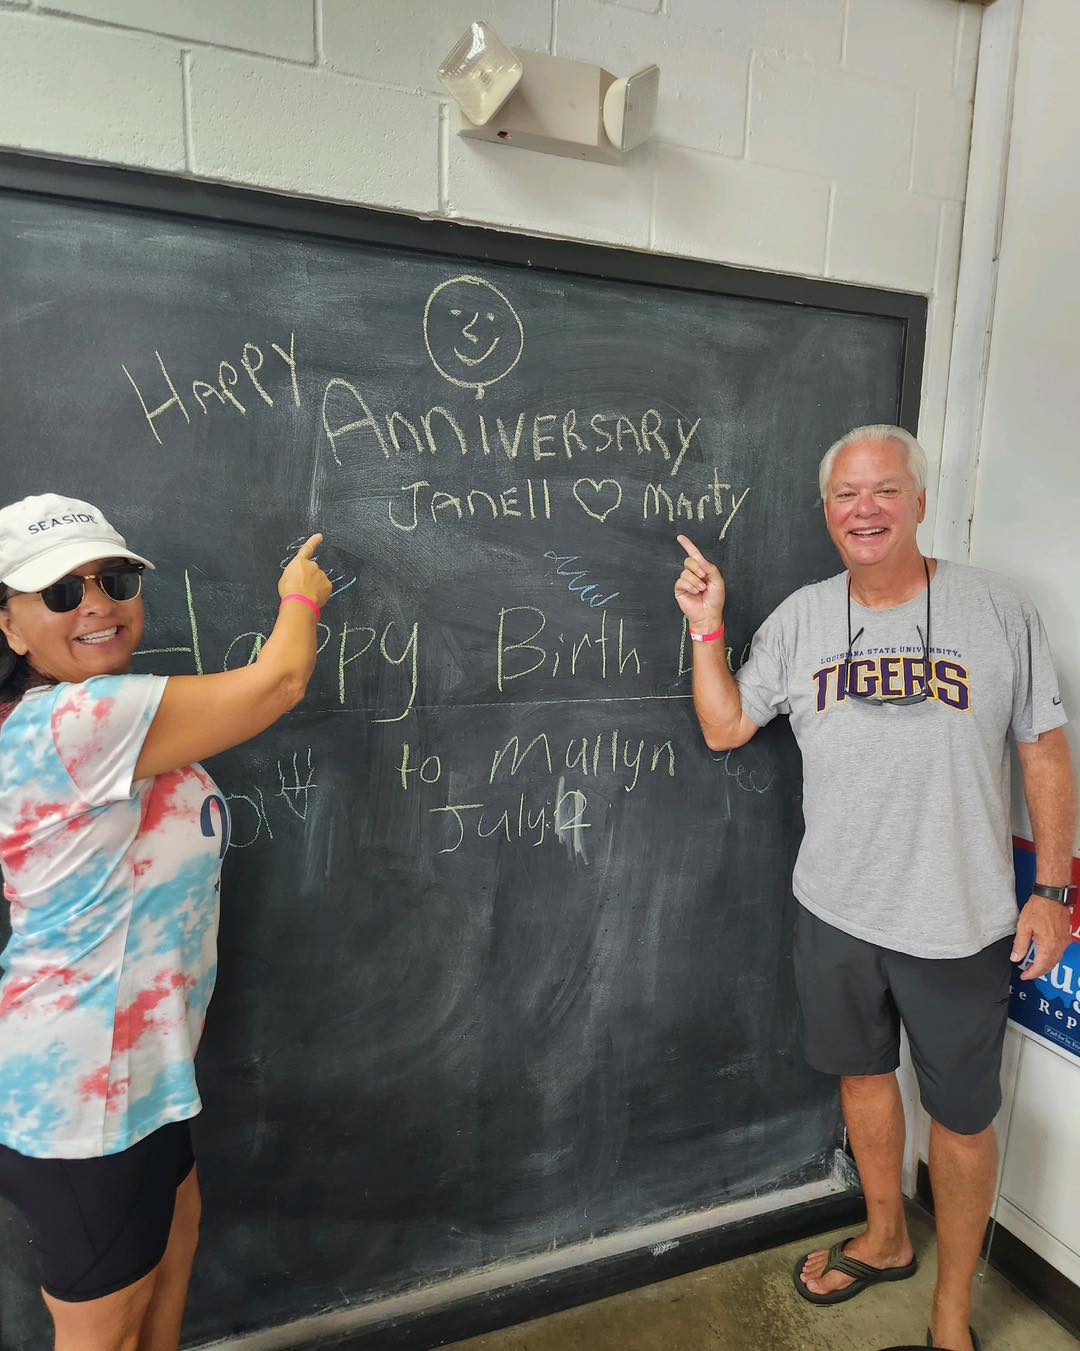 Happy
Anniversary
Janell ♡ Marty
Happy Birth
to Mallyn
July 2
SEASIDE
LOUISIANA STATE UNIVERSITY
TIGERS